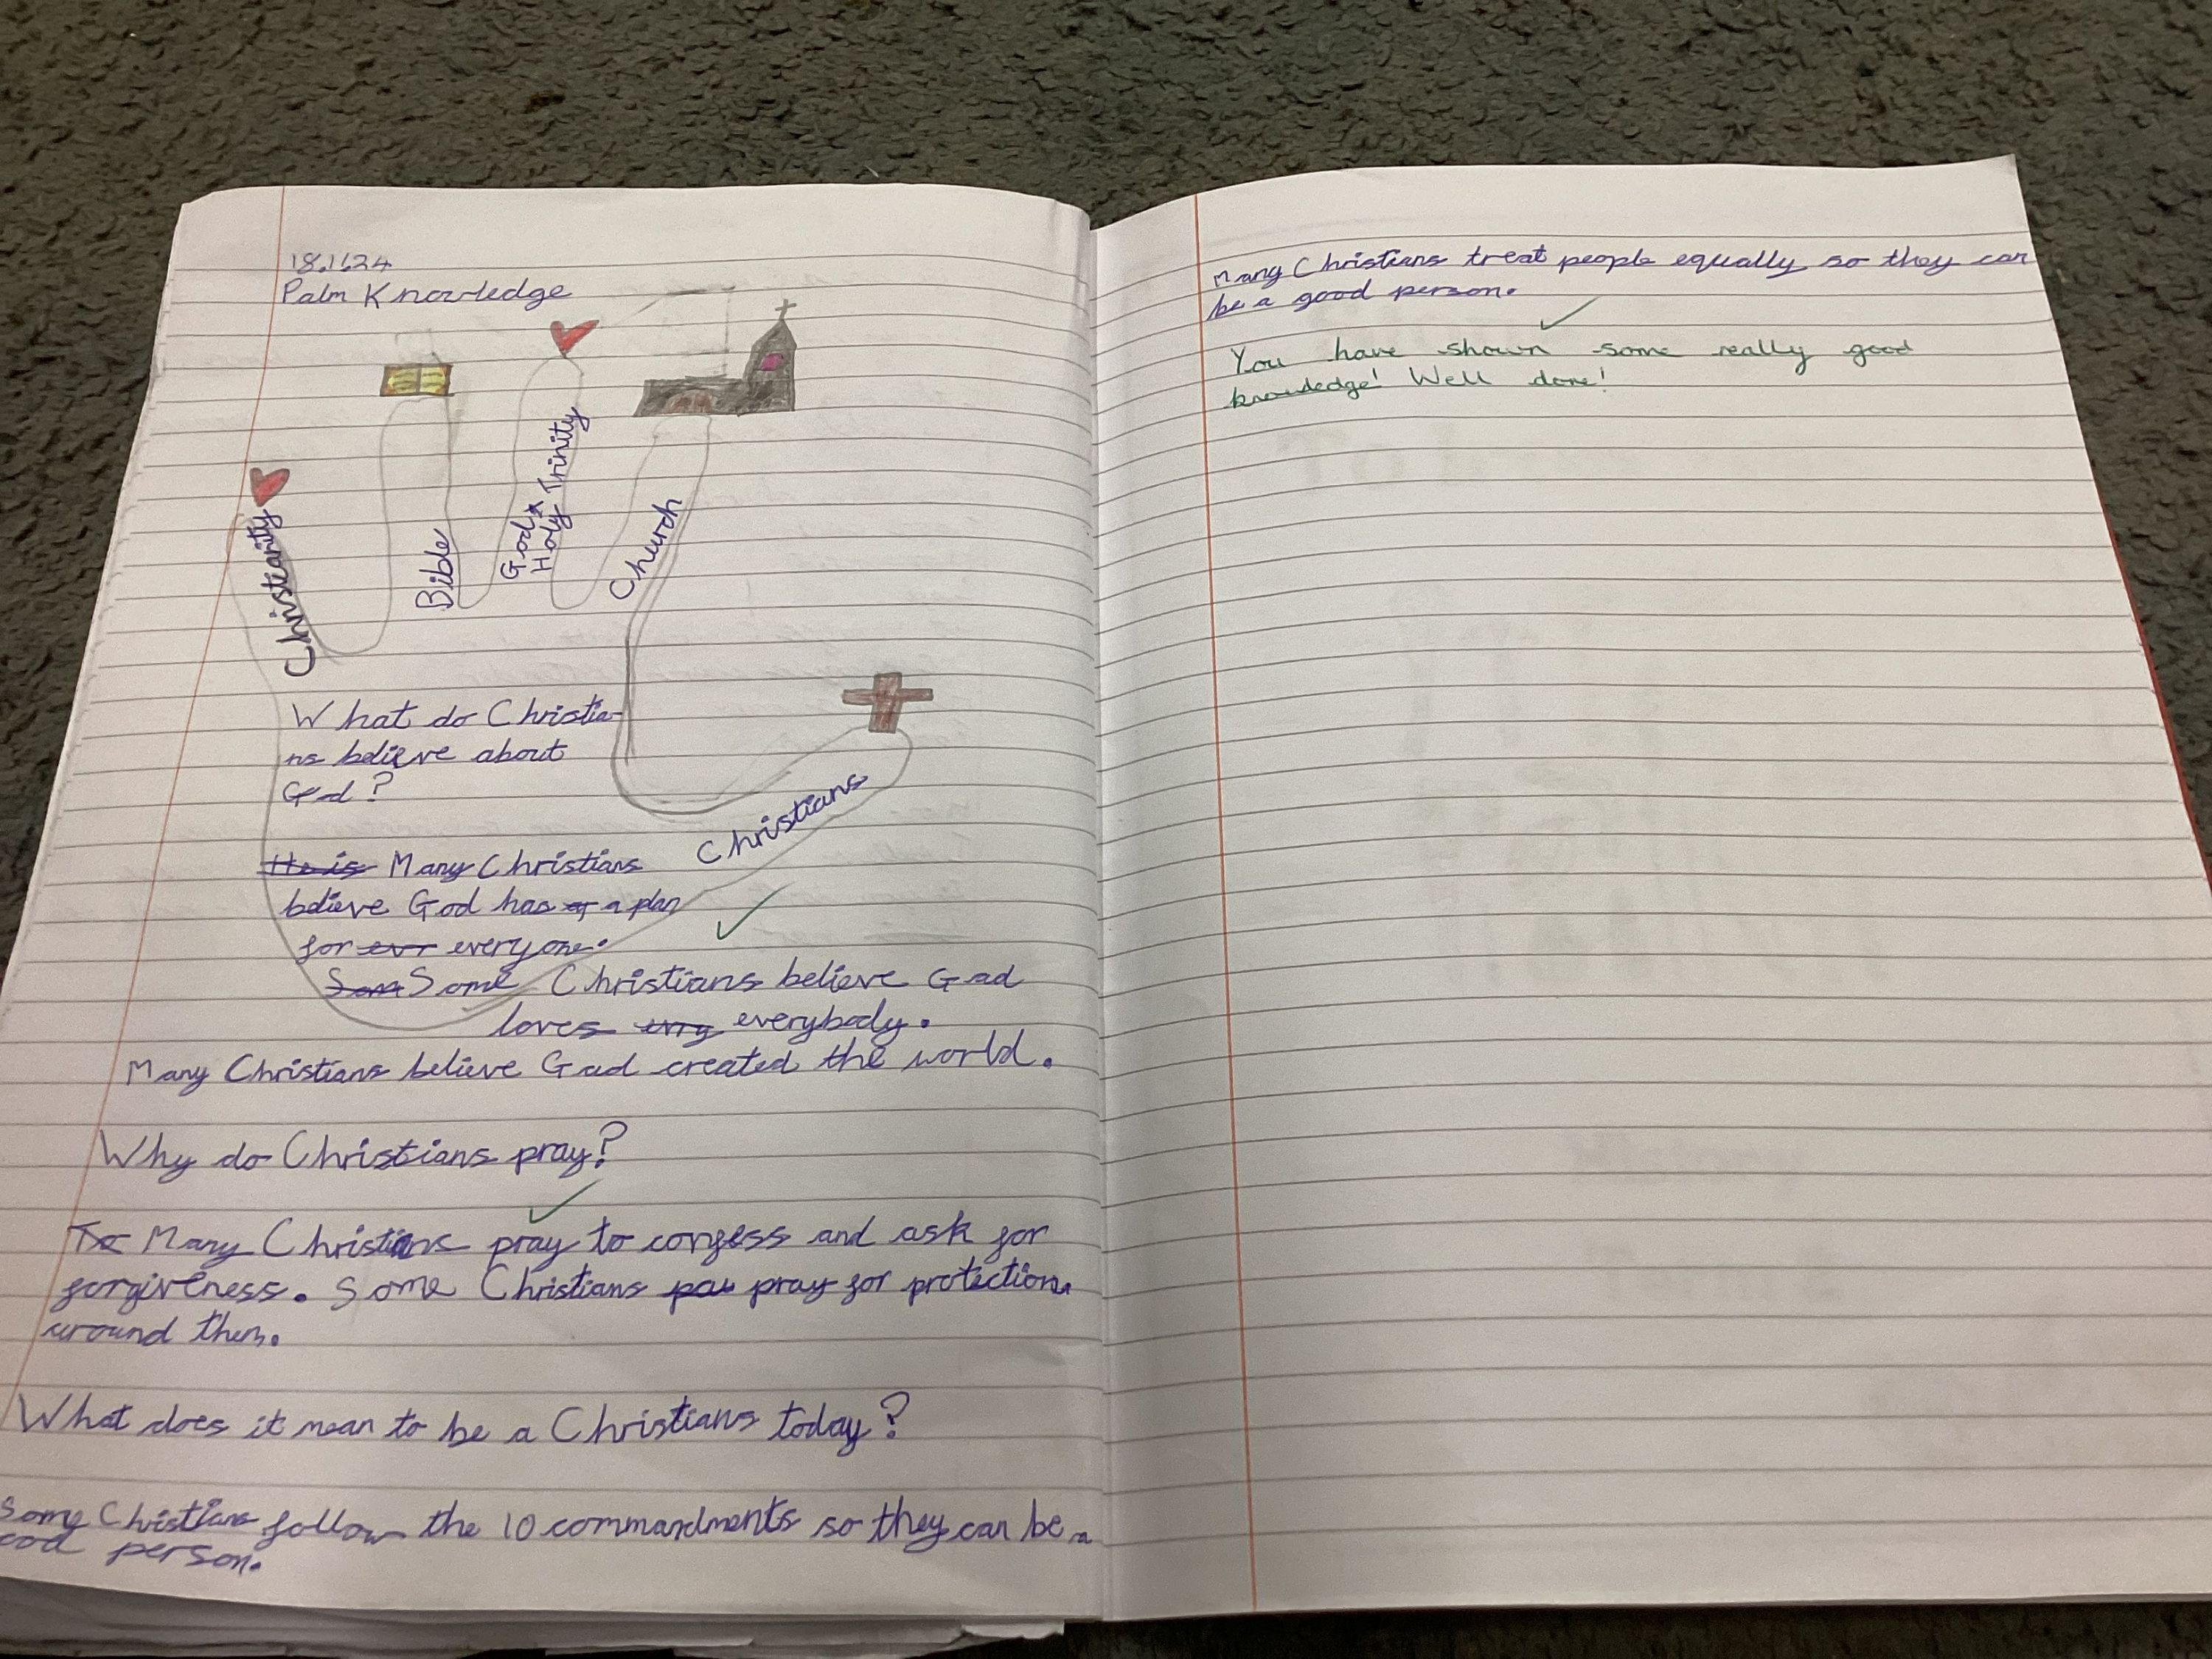 18.1.24
Palm Knowledge
Christianity
Bible
God
Holy Trinity
Church
Christians
What do Christia-
ns believe about
God?
He is Many Christians
believe God has a plan
for evr everyone.
Som Some Christians believe God
loves evry everybody.
Many Christians believe God created the world.
Why do Christians pray?
To Many Christians pray to confess and ask for
forgiveness. Some Christians pau pray for protection
around them.
What does it mean to be a Christians today?
Some Christians follow the 10 commandments so they can be a
good person.
Many Christians treat people equally so they can
be a good person.
You have shown some really good
knowledge! Well done!